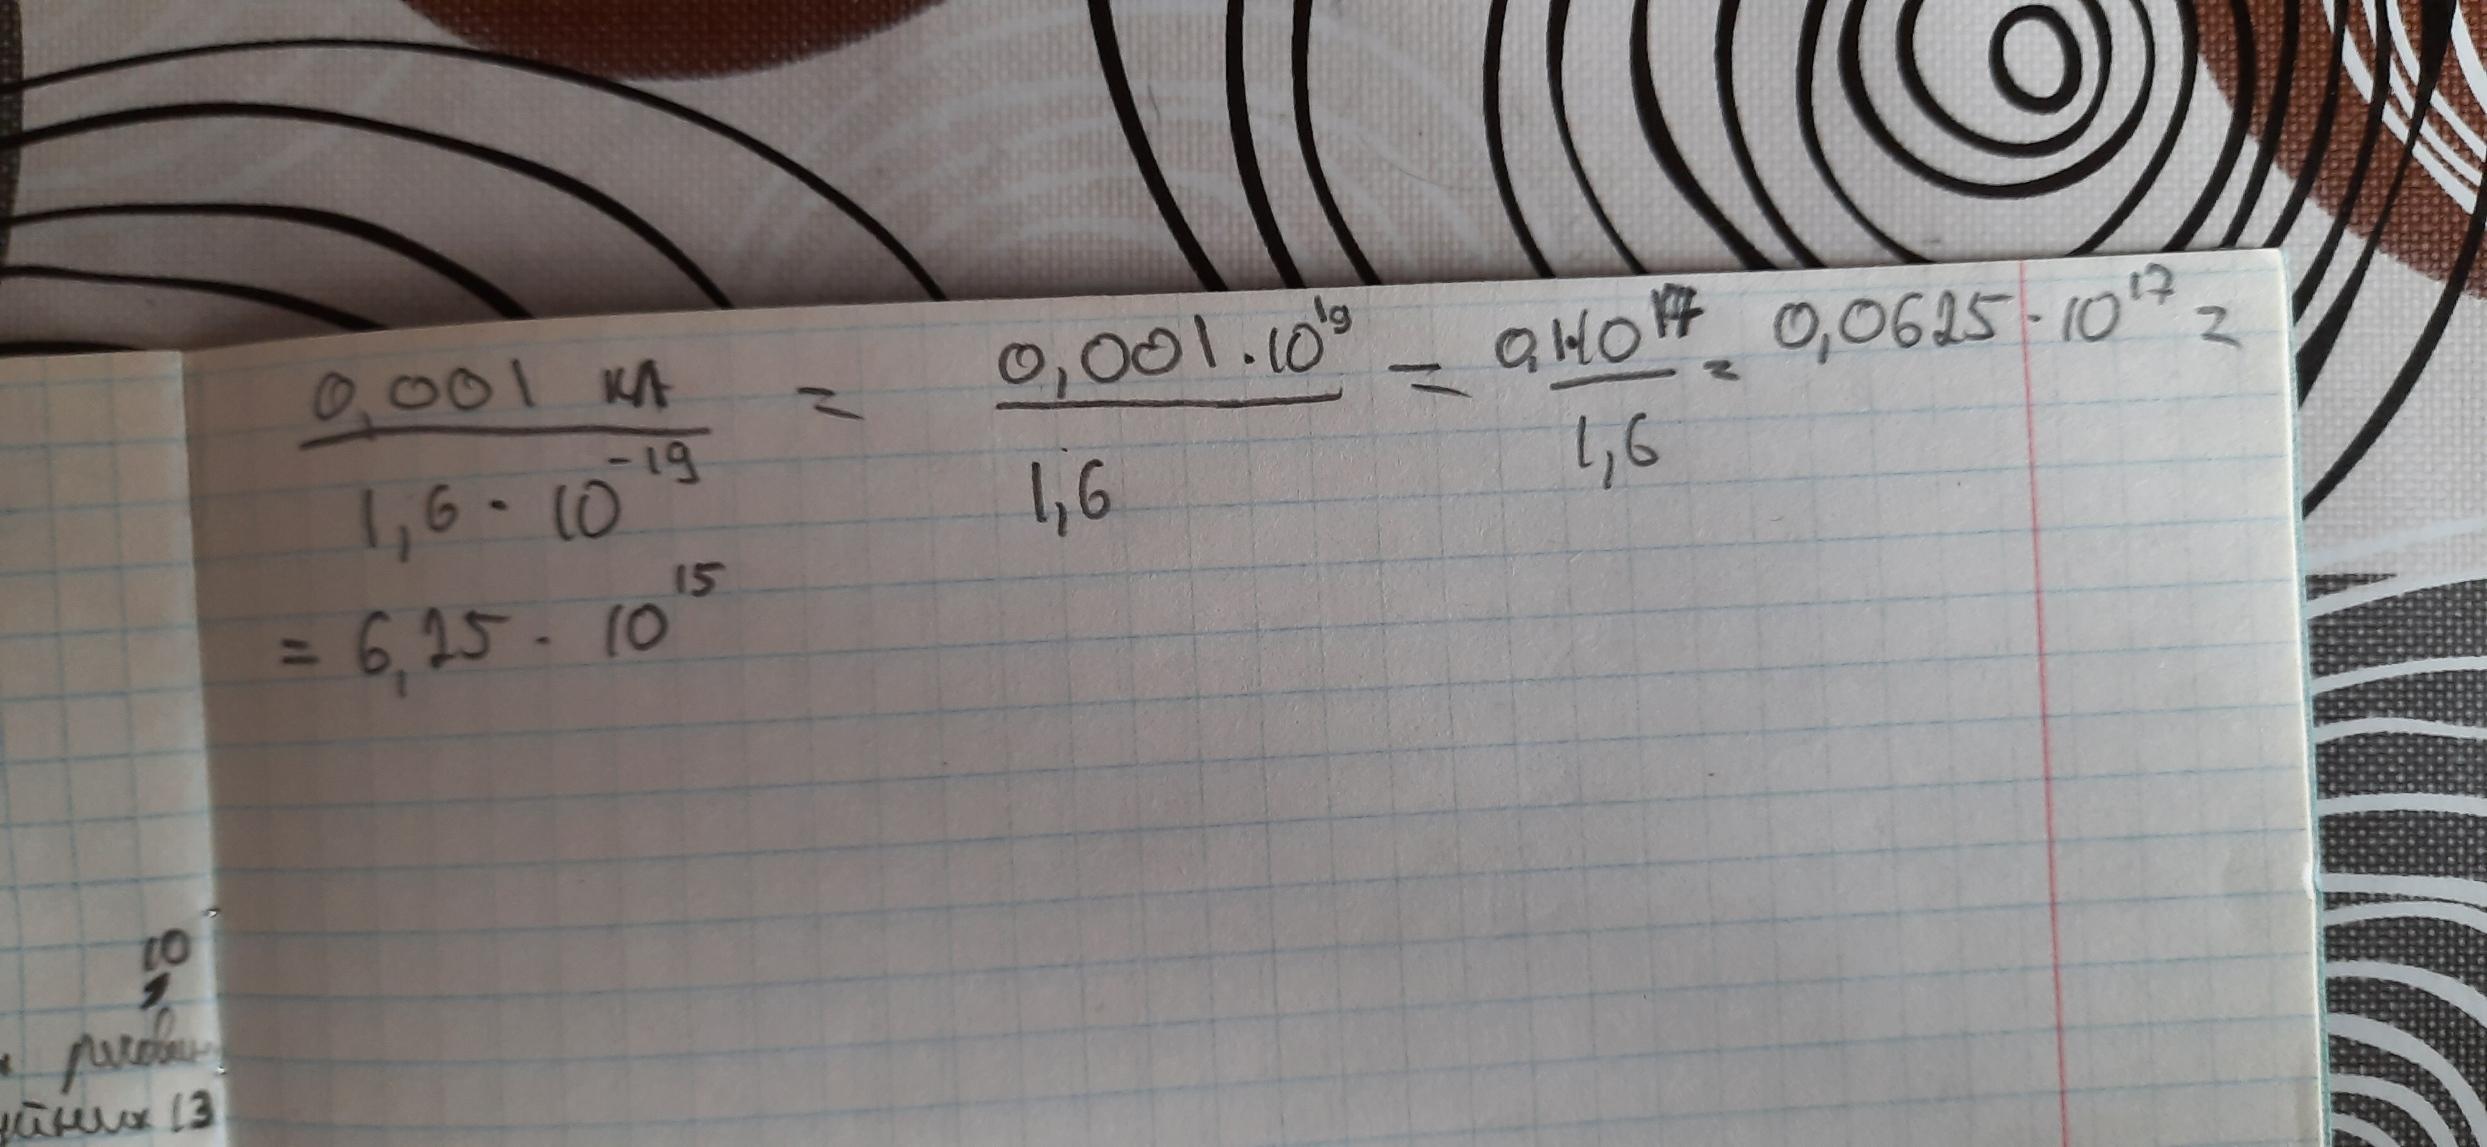 0,001 кл / 1,6 · 10^-19 = 0,001 · 10^19 / 1,6 = 0,1·10^17 / 1,6 = 0,0625 · 10^17 =
= 6,25 · 10^15
10
13